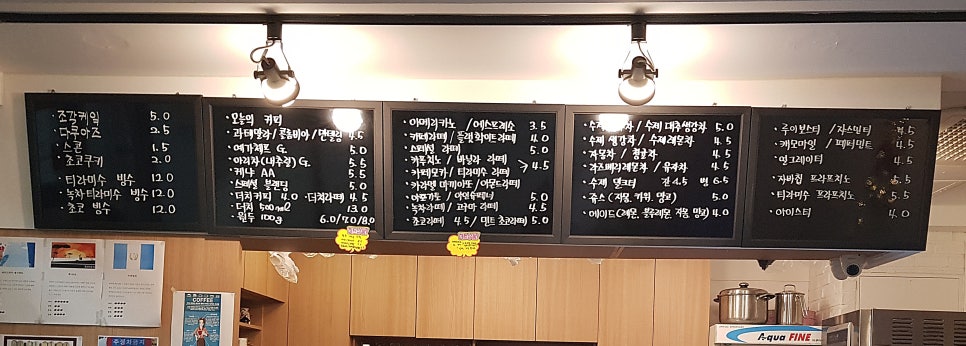 ·조각케잌 5.0
·다쿠아즈 2.5
·스콘 1.5
·초코쿠키 2.0
·티라미수 빙수 12.0
·녹차티라미수 빙수 12.0
·초코 빙수 12.0
·오늘의 커피
·과테말라/콜롬비아/만델링 4.5
·예가체프 G. 5.0
·아리차(내추럴) G. 5.5
·케냐 AA 5.5
·스페셜 블렌딩 5.0
·더치커피 4.0 ·더치라떼 4.5
·더치 500ml 13.0
·원두 100g 6.0/7.0/8.0
·아메리카노/에스프레소 3.5
·카페라떼/플랫화이트라떼 4.0
·스페셜 라떼 5.0
·카푸치노/바닐라 라떼
·카페모카/티라미수 라떼 > 4.5
·카라멜 마끼아또/아몬드라떼
·아포가토 5.0
·녹차라떼/고구마 라떼 4.5
·초코라떼 4.5/민트 초코라떼 5.0
수제 대추생강차 5.0
·수제 생강차/수제레몬차 5.0
·자몽차/청귤차 5.0
·라즈베리레몬차/유자차 5.0
·수제 뱅쇼 잔 4.5 병 6.5
·쥬스(자몽, 키위, 망고) 5.0
·에이드(레몬, 블루레몬, 자몽, 망고) 4.0
·루이보스티/자스민티 4.5
·캐모마일/페퍼민트 4.5
·잉그레이티 4.5
·자바칩 프라프치노 5.5
·티라미수 프라프치노 5.5
·아이스티 4.0
COFFEE
Aqua FINE